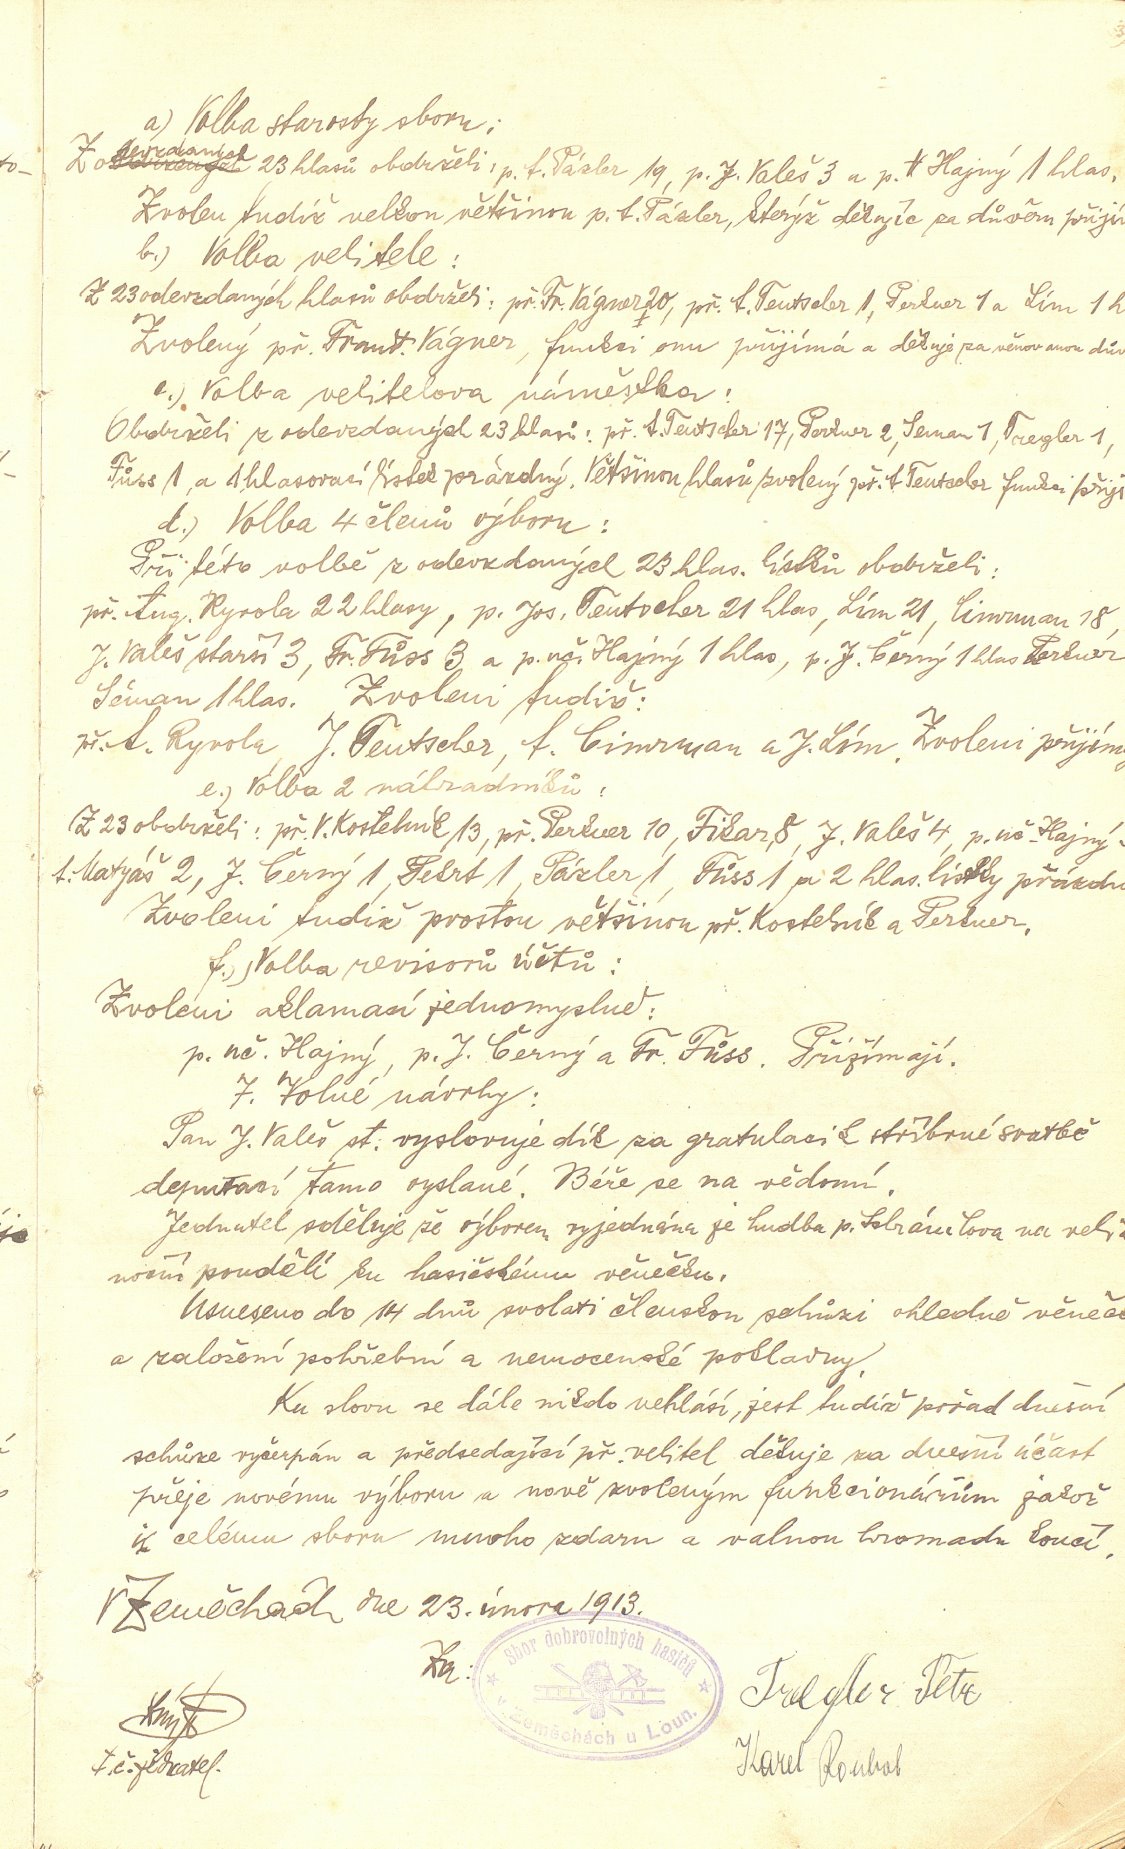 a) Volba starosty sboru:
Z odevzdaných 23 hlasů obdrželi: p. A. Pázler 19, p. J. Valeš 3 a p. Hajný 1 hlas.
Zvolen tudíž velkou většinou p. A. Pázler, kterýž děkujíc za důvěru přijí
b.) Volba velitele:
Z 23 odevzdaných hlasů obdrželi: př. Fr. Vágner 20, př. A. Teutscher 1, Perkner 1 a Lím 1 h
Zvolený př. Frant. Vágner, funkci onu přijímá a děkuje za věnovanou dův
c.) Volba velitelova náměstka:
Obdrželi z odevzdaných 23 hlasů: př. A. Teutscher 17, Perkner 2, Seman 1, Tregler 1,
Füss 1, a 1 hlasovací lístek prázdný. Většinou hlasů zvolený př. A Teutscher funkci přijí
d.) Volba 4 členů výboru:
Při této volbě z odevzdaných 23 hlas. lístků obdrželi:
př. Aug. Ryvola 22 hlasy, p. Jos. Teutscher 21 hlas, Lím 21, Cimrman 18,
J. Valeš starší 3, Fr. Füss 3 a p. nč. Hajný 1 hlas, p. J. Černý 1 hlas Perkner
Séman 1 hlas. Zvoleni tudíž:
př. A. Ryvola, J. Teutscher, A. Cimrman a J. Lím. Zvoleni přijím
e.) Volba 2 náhradníků:
Z 23 obdrželi: př. V. Kostelník 13, př. Perkner 10, Fikar 8, J. Valeš 4, p. nč. Hajný
A. Matyáš 2, J. Černý 1, Pekrt 1, Pázler 1, Füss 1 a 2 hlas. lístky prázdn
Zvoleni tudíž prostou většinou př. Kostelník a Perkner.
f.) Volba revisorů účtů:
Zvoleni aklamací jednomyslně:
p. nč. Hajný, p. J. Černý a Fr. Füss. Přijímají.
7. Volné návrhy:
Pan J. Valeš st. vyslovuje dík za gratulaci k stříbrné svatbě
deputací tamo vyslané. Béře se na vědomí.
Jednatel sděluje že výborem vyjednána je hudba p. Schránilova na veli
noční pondělí ku hasičskému věnečku.
Usneseno do 14 dnů svolati členskou schůzi ohledně věneč
a založení pohřební a nemocenské pokladny.
Ku slovu se dále nikdo nehlásí, jest tudíž pořad dnešní
schůze vyčerpán a předsedající př. velitel děkuje za dnešní účast
přeje novému výboru a nově zvoleným funkcionářům jakož
i celému sboru mnoho zdaru a valnou hromadu končí.
V Zeměchách dne 23. února 1913.
Za:
Sbor dobrovolných hasičů
v Zeměchách u Loun.
Tregler Petr
Karel Roubal
t. č. jednatel.